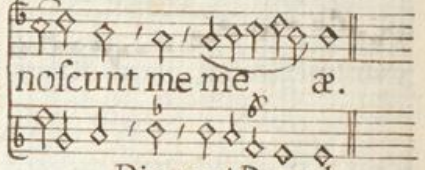 noſcunt me meæ.